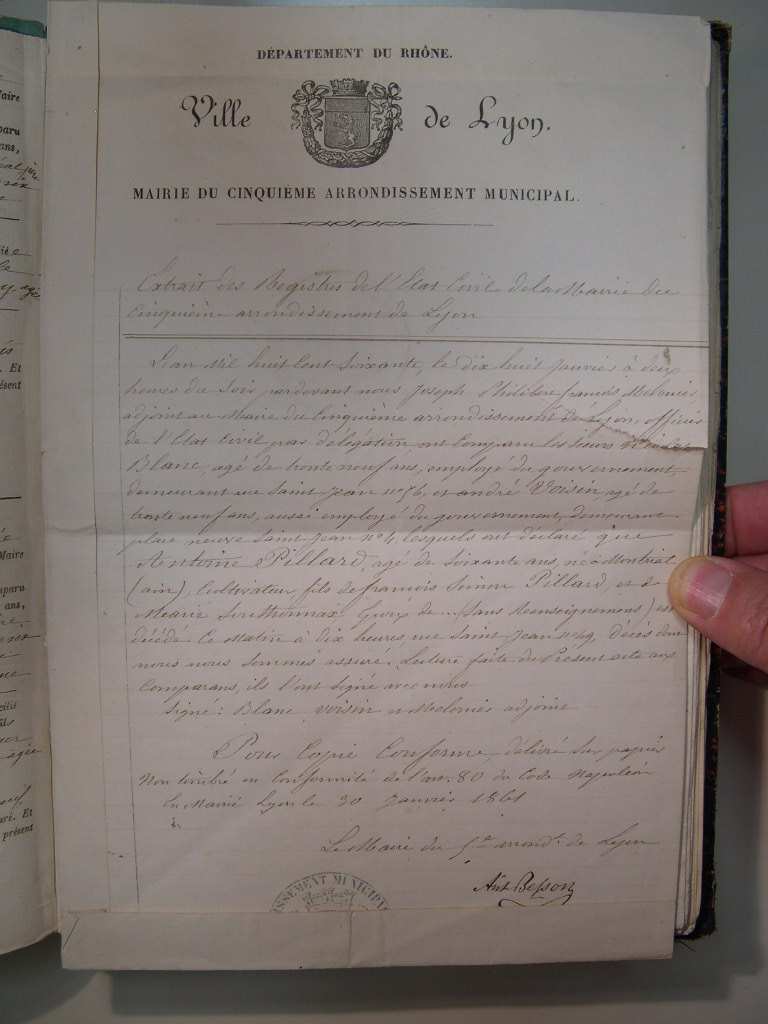 DÉPARTEMENT DU RHÔNE.
Ville de Lyon.
MAIRIE DU CINQUIÈME ARRONDISSEMENT MUNICIPAL.
Extrait des Registres de l'Etat Civil de la Mairie du
Cinquième arrondissement de Lyon
L'an Mil huit Cent Soixante, le dix huit Janvier à deux
heures du Soir pardevant nous Joseph Philibert françois
adjoint au Maire du Cinquième arrondissement de Lyon, officier
de l'Etat Civil par délégation, ont Comparu les Sieurs
Blanc, agé de trente neuf ans, employé du gouvernement,
demeurant rue Saint Jean n° 56, et andré Voisin, agé de
trente neuf ans, aussi employé du gouvernement, demeurant
place neuve Saint Jean n° 4, lesquels ont déclaré que
Antoine Pillard, agé de Soixante ans, né à Montréal
(ain), Cultivateur, fils de françois Simon Pillard, et de
Marie Époux de (Sans Renseignemens) est
décédé Ce Matin à dix heures, rue Saint Jean n° 49, Décès dont
nous nous Sommes assuré. Lecture faite du Présent acte aux
Comparans, ils l'ont Signé avec nous
Signé : Blanc Voisin adjoint
Pour Copie Conforme, délivré Sur papier
Non timbré en Conformité de l'art. 80 du Code Napoléon
En Mairie Lyon le 30 Janvier 1861
Le Maire du 5me arrondt. de Lyon
Ant Besson
ISSEMENT MUNICIPAL
Maire
aparu
ans,
Et
présent
Maire
mparu
ans,
Et
présent